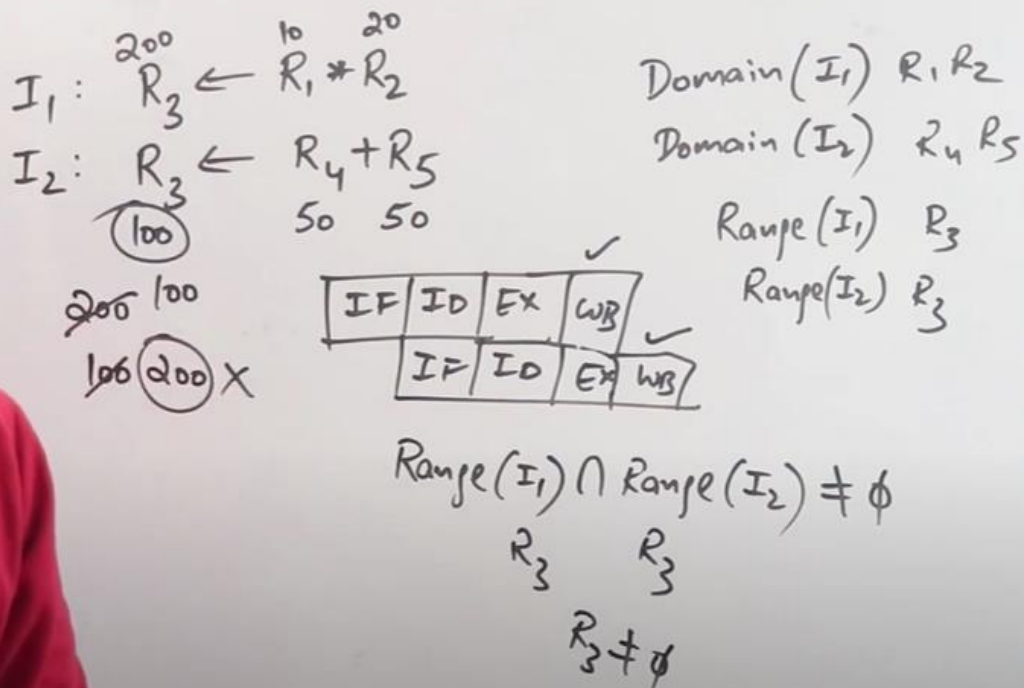 200 10 20
I₁: R₃ ← R₁ * R₂
I₂: R₃ ← R₄ + R₅
100 50 50
200 100
100 200 X
Domain (I₁) R₁ R₂
Domain (I₂) R₄ R₅
Range (I₁) R₃
Range (I₂) R₃
✓
IF ID EX WB
✓
IF ID EX WB
Range (I₁) ∩ Range (I₂) ≠ ϕ
R₃ R₃
R₃ ≠ ϕ